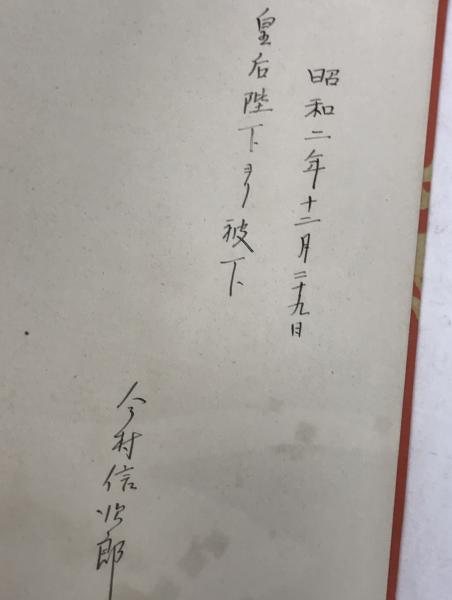 昭和二年十二月二十九日
皇后陛下ヨリ被下
今村信次郎